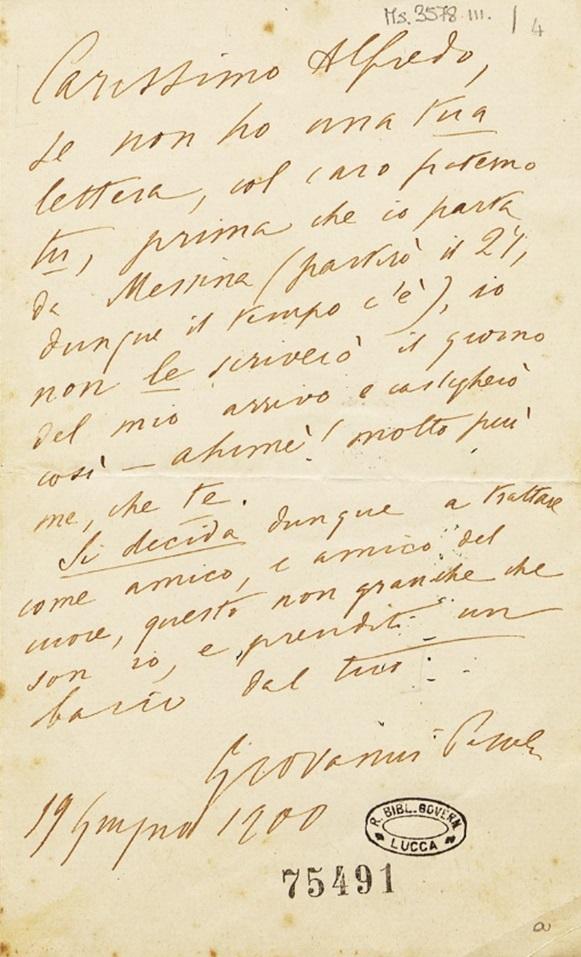 Ms. 3578.III. / 4
Carissimo Alfredo,
se non ho una tua
lettera, col caro fraterno
tu, prima che io parta
da Messina (partirò il 27,
dunque il tempo c'è), io
non le scriverò il giorno
del mio arrivo e castigherò
così — ahimè! molto più
me, che te.
Si decida dunque a trattare
come amico, e amico del
cuore, questo non granche che
son io, e prenditi un
bacio dal tuo:
Giovanni Pascoli
19 Giugno 1900
R. BIBL. GOVERN.
LUCCA
75491